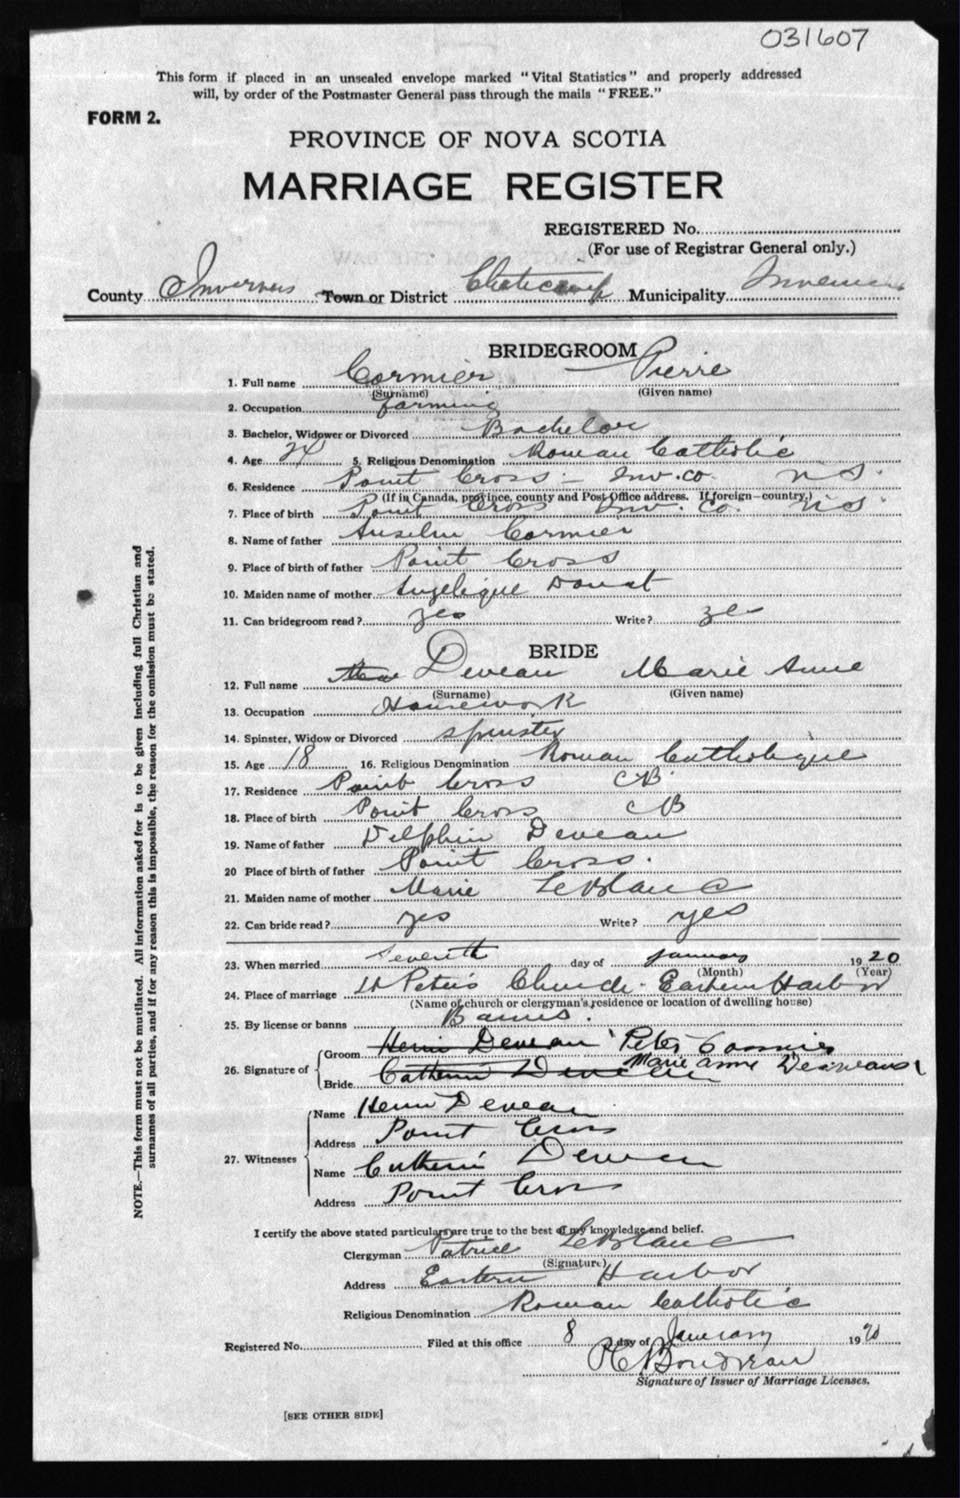 031607
This form if placed in an unsealed envelope marked "Vital Statistics" and properly addressed
will, by order of the Postmaster General pass through the mails "FREE."
FORM 2.
PROVINCE OF NOVA SCOTIA
MARRIAGE REGISTER
REGISTERED No.
(For use of Registrar General only.)
County Inverness Town or District Cheticamp Municipality Inverness
BRIDEGROOM
1. Full name Cormier Pierre
(Surname) (Given name)
2. Occupation farming
3. Bachelor, Widower or Divorced Bachelor
4. Age 24 5. Religious Denomination Roman Catholic
6. Residence Point Cross - Inv. Co. N S.
(If in Canada, province, county and Post Office address. If foreign—country.)
7. Place of birth Point Cross Inv. Co. N S
8. Name of father Anselm Cormier
9. Place of birth of father Point Cross
10. Maiden name of mother Angelique
11. Can bridegroom read? yes Write? yes
BRIDE
12. Full name Deveau Marie Anne
(Surname) (Given name)
13. Occupation Housework
14. Spinster, Widow or Divorced spinster
15. Age 18 16. Religious Denomination Roman Catholique
17. Residence Point Cross CB
18. Place of birth Point Cross CB
19. Name of father Delphin Deveau
20 Place of birth of father Point Cross.
21. Maiden name of mother Marie LeBlanc
22. Can bride read? yes Write? yes
23. When married seventh day of January 1920
(Month) (Year)
24. Place of marriage St Peter's Church - Eastern Harbor
(Name of church or clergyman's residence or location of dwelling house)
25. By license or banns Banns.
26. Signature of Groom Henri Deveau Peter Cormier
Bride Catherine Deveau Marie Anne
27. Witnesses Name Henri Deveau
Address Point Cross
Name Catherine Deveau
Address Point Cross
I certify the above stated particulars are true to the best of my knowledge and belief.
Clergyman Patrice LeBlanc
(Signature)
Address Eastern Harbor
Religious Denomination Roman Catholic
Registered No. Filed at this office 8 day of January 1920
Boudreau
Signature of Issuer of Marriage Licenses.
[SEE OTHER SIDE]
NOTE.—This form must not be mutilated. All information asked for is to be given including full Christian and
surnames of all parties, and if for any reason this is impossible, the reason for the omission must be stated.